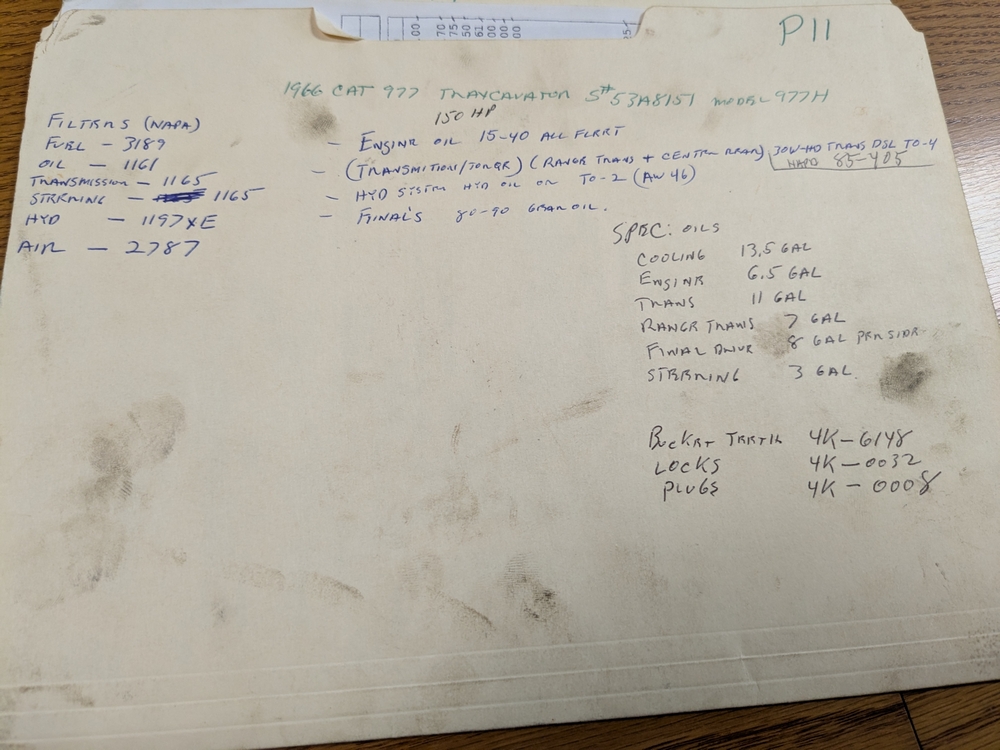 P11
1966 CAT 977 TRAXCAVATOR S# 53A8151 MODEL 977H
150 HP
FILTERS (NAPA)
FUEL - 3189
OIL - 1161
TRANSMISSION - 1165
STEERING - 1165
HYD - 1197XE
AIR - 2787
- ENGINE OIL 15-40 ALL FLEET
- (TRANSMITION/TORQE) (RANGE TRANS + CENTER REAR) 30W-HD TRANS DSL TO-4
NAPA 85-405
- HYD SISTEM HYD OIL OR TO-2 (AW 46)
- FINAL'S 80-90 GEAR OIL.
SPEC: OILS
COOLING 13,5 GAL
ENGINE 6.5 GAL
TRANS 11 GAL
RANGE TRANS 7 GAL
FINAL DRIVE 8 GAL PER SIDE
STEERING 3 GAL
BUCKET TEETH 4K-6148
LOCKS 4K-0032
PLUGS 4K-0008